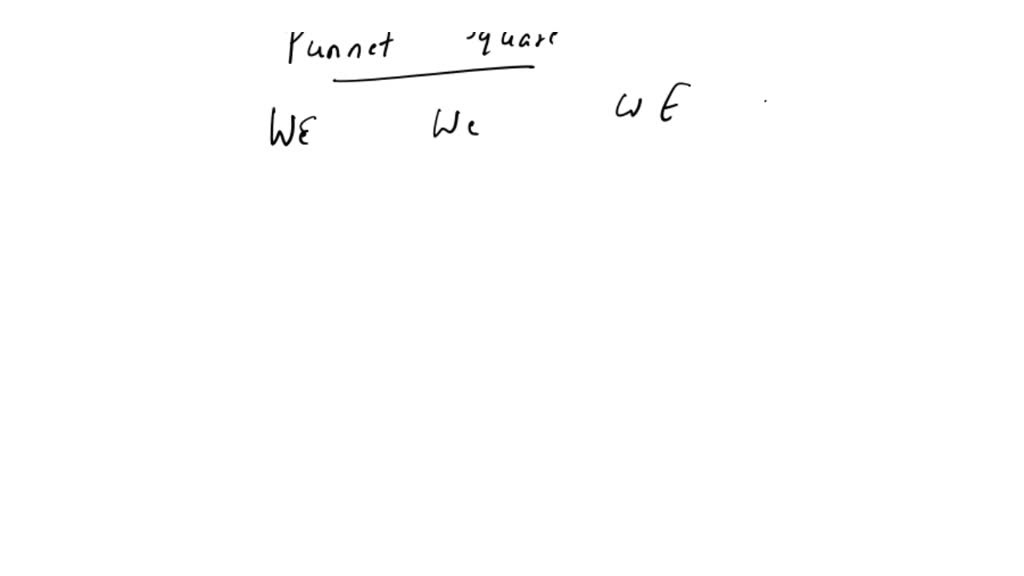 Punnet square
WE We wE